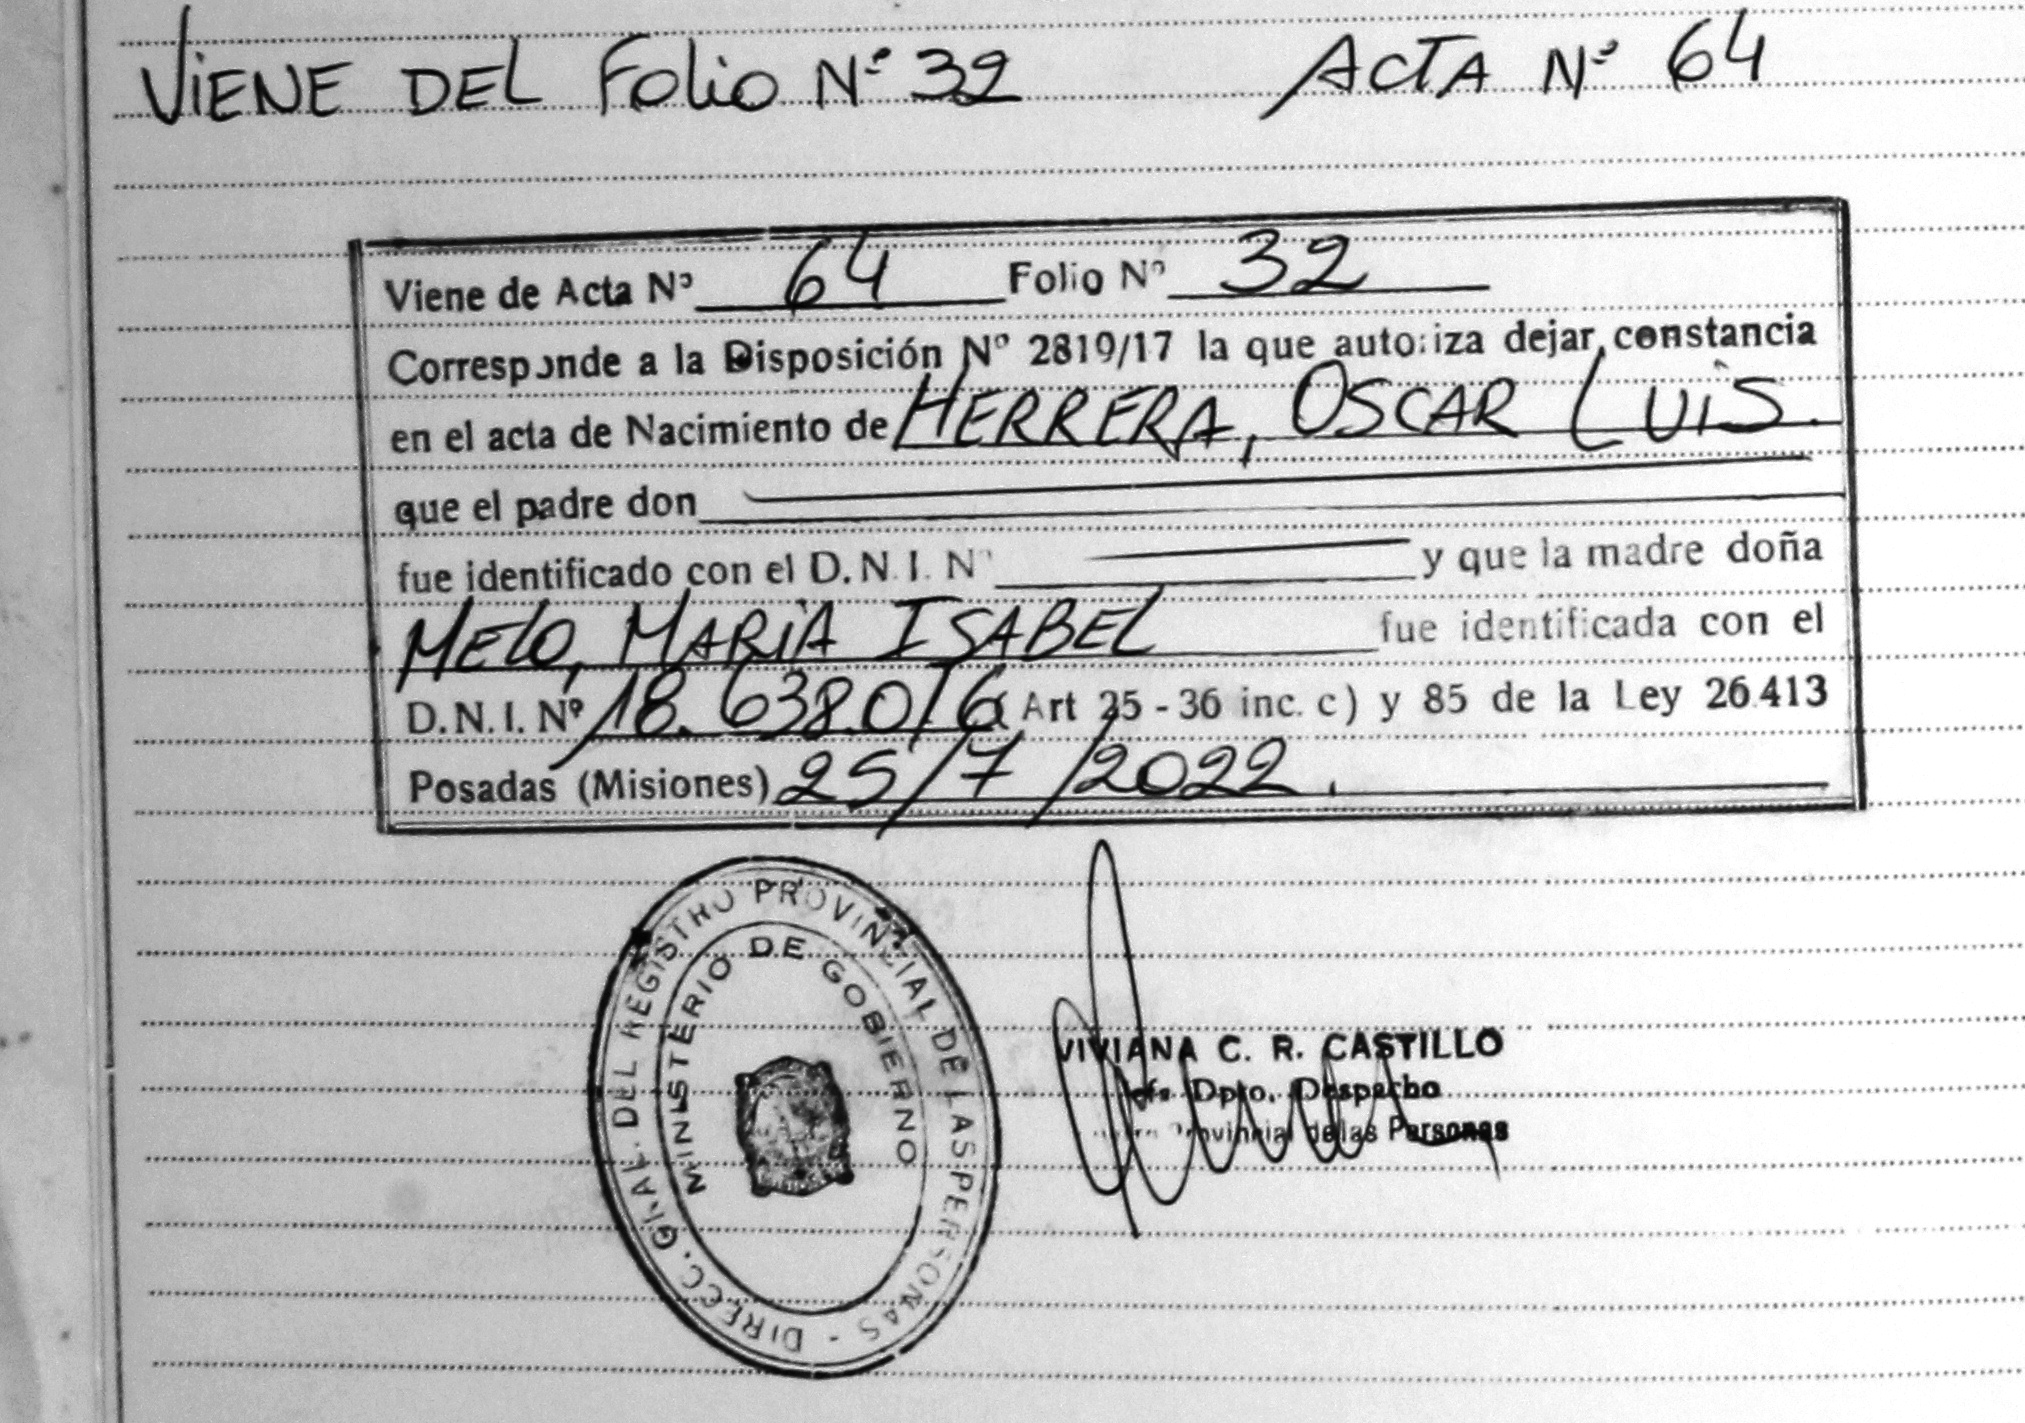 VIENE DEL Folio Nº 32 ACTA Nº 64
Viene de Acta Nº 64 Folio Nº 32
Corresponde a la Disposición Nº 2819/17 la que autoriza dejar constancia
en el acta de Nacimiento de HERRERA, OSCAR LUIS.
que el padre don
fue identificado con el D.N.I. Nº y que la madre doña
MELO, MARIA ISABEL fue identificada con el
D.N.I. Nº 18.638.016 (Art 25 - 36 inc. c) y 85 de la Ley 26.413
Posadas (Misiones) 25/7/2022.
DIRECC. GRAL. DEL REGISTRO PROVINCIAL DE LAS PERSONAS -
MINISTERIO DE GOBIERNO
VIVIANA C. R. CASTILLO
Jefe Dpto. Despacho
Provincial de las Personas